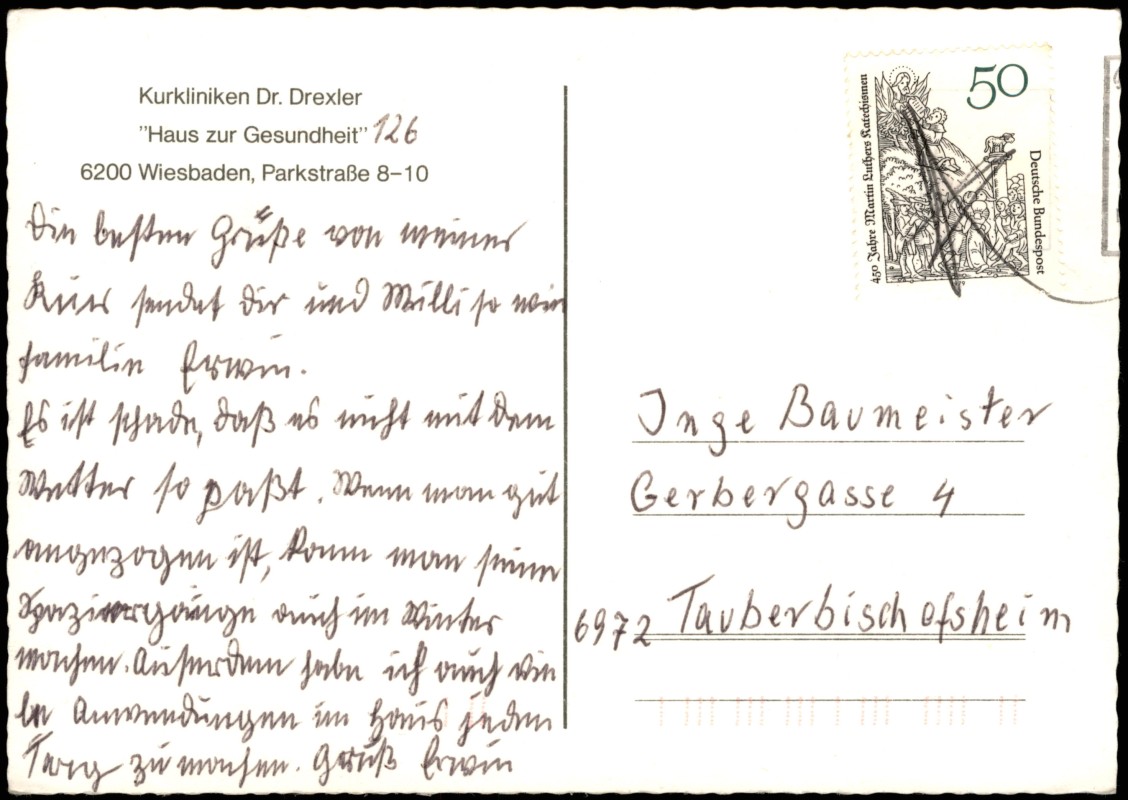 Kurkliniken Dr. Drexler
"Haus zur Gesundheit" 126
6200 Wiesbaden, Parkstraße 8–10
Die besten Grüße von meiner
Kur sendet dir und Milli so wie
familie Erwin.
Es ist schade, daß es nicht mit dem
Wetter so paßt. Wenn man gut
angezogen ist, kann man seine
Spaziergänge auch im Winter
machen. Außerdem habe ich auch vie
le Anwendungen im Haus jeden
Tag zu machen. Gruß Erwin
50
450 Jahre Martin Luthers Katechismen
Deutsche Bundespost
Inge Baumeister
Gerbergasse 4
6972 Tauberbischofsheim